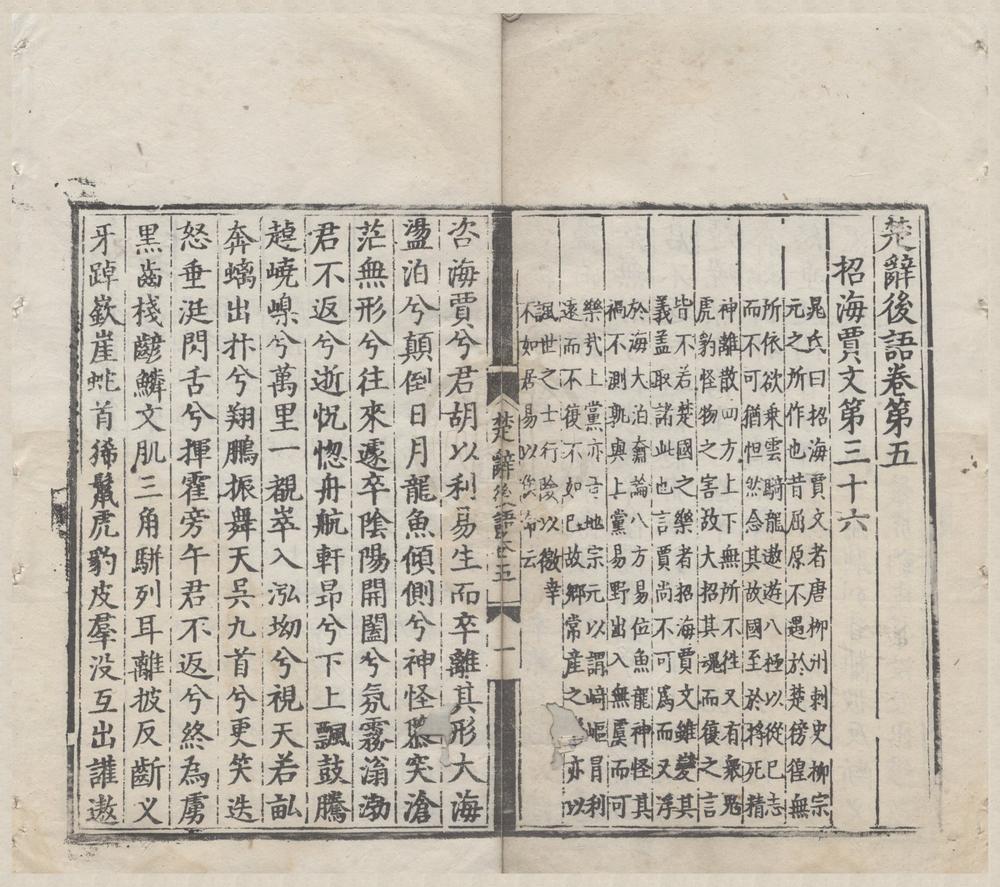 楚辭後語卷第五
招海賈文第三十六
晁氏曰招海賈文者唐柳州刺史柳宗
元之所作也昔屈原不遇於楚徬徨無
所依欲乘雲騎龍遨遊八極以從己志
而不可猶怛然念其故國至於將死精
神離散四方上下無所不往又有衆鬼
虎豹怪物之害故大招其魂而復之言
皆不若楚國之樂者招海賈文雖變其
義盖取諸此也言賈尚不可爲而又浮
於海大泊奫淪八方易位魚龍神怪其
禍不測孰與上黨易野出入無虞而可
樂哉上黨亦晉地宗元以謂崎嶇冒利
遠而不復不如己故鄉常産之樂亦以
諷世之士行險以徼幸
不如居易以俟命云
楚辭後語卷五
一
咨海賈兮君胡以利易生而卒離其形大海
盪泊兮顛倒日月龍魚傾側兮神怪隳突滄
茫無形兮往來遽卒陰陽開闔兮氛霧滃渤
君不返兮逝怳惚舟航軒昂兮下上飄鼓騰
趠嶢嵲兮萬里一覩崒入泓坳兮視天若畝
奔螭出抃兮翔鵬振舞天吳九首兮更笑迭
怒垂涎閃舌兮揮霍旁午君不返兮終為虜
黑齒棧齴鱗文肌三角駢列耳離披反斷义
牙踔嶔崖虵首豨鬣虎豹皮羣没互出讙遨